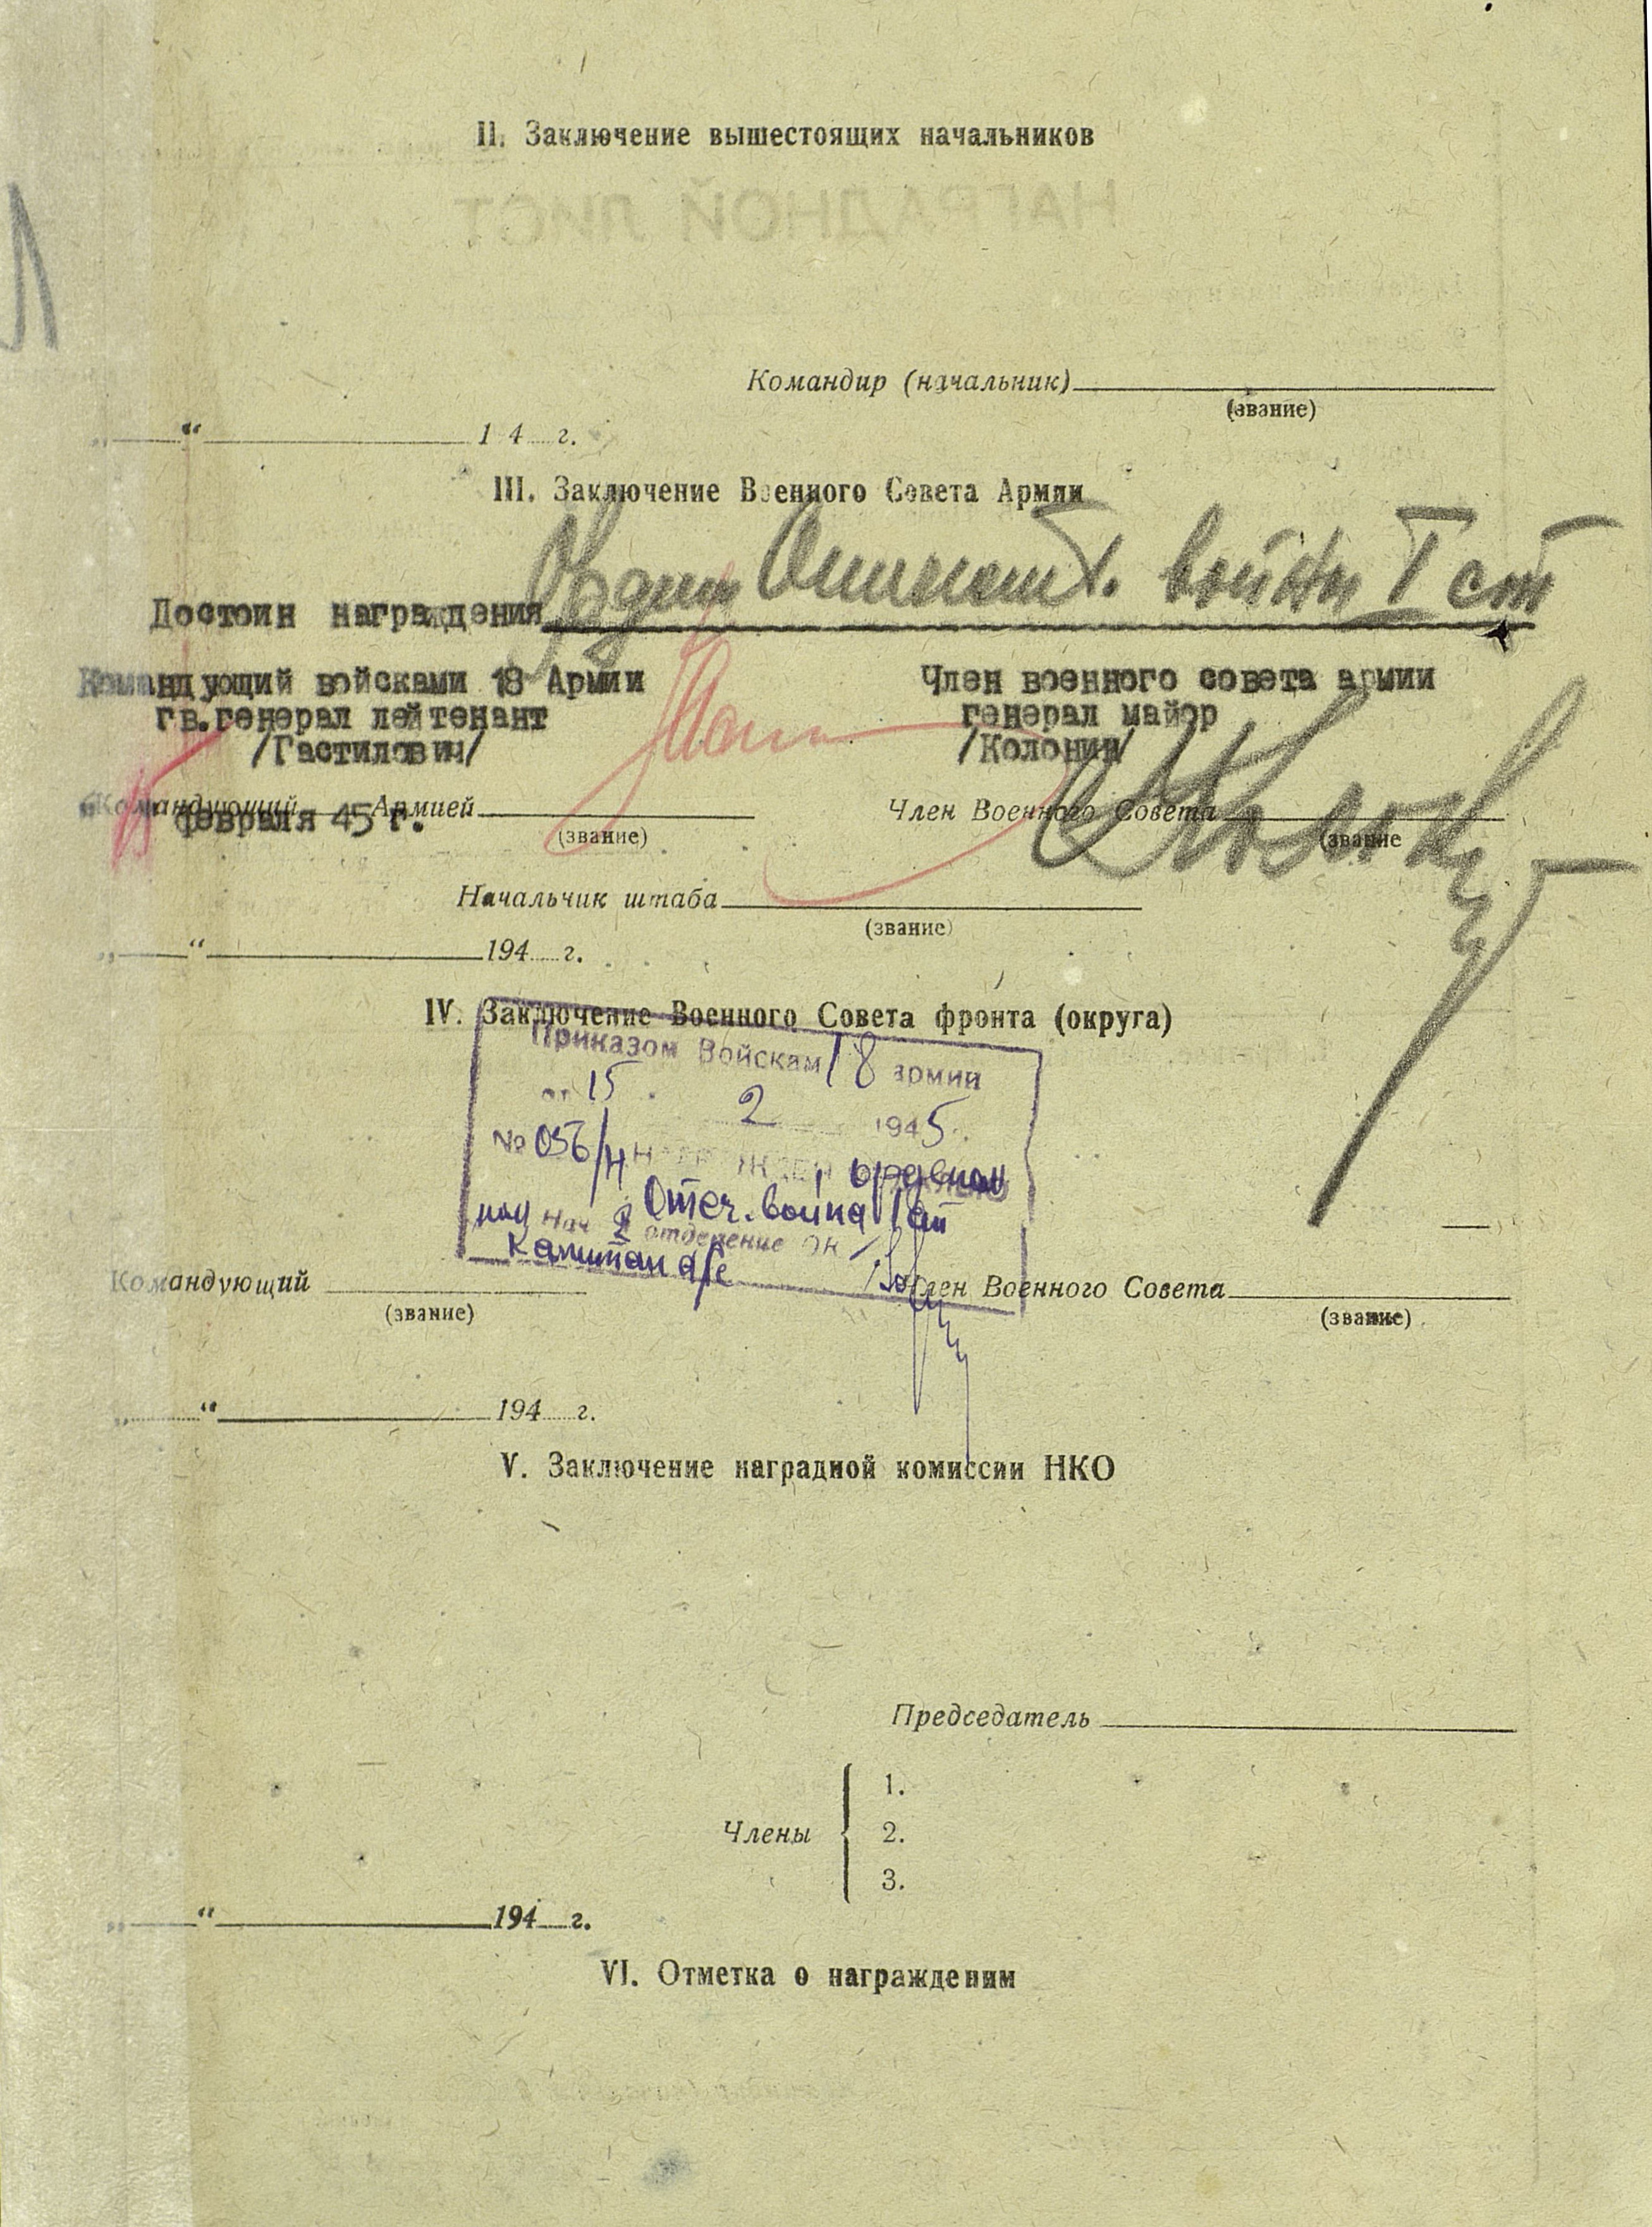 II. Заключение вышестоящих начальников
НАГРАДНОЙ ЛИСТ
Командир (начальник)
(звание)
„ “ 1 4 г.
III. Заключение Военного Совета Армии
Достоин награждения Орден Отечест. войны I ст
Командующий войсками 18 Армии
гв.генерал лейтенант
/Гастилович/
Член военного совета армии
генерал майор
/Колонин/
Командующий Армией
(звание)
Член Военного Совета
(звание
15 февраля 45 г.
Начальник штаба
(звание)
„ “ 194 г.
IV. Заключение Военного Совета фронта (округа)
Приказом Войскам 18 армии
от 15 2 1945
№ 056/н НАГРАЖДЕН орденом
Отеч. война I ст
Нач 2 отделение ОК
капитан а/с
Командующий
(звание)
Член Военного Совета
(звание)
„ “ 194 г.
V. Заключение наградной комиссии НКО
Председатель
Члены
1.
2.
3.
„ “ 194 г.
VI. Отметка о награждении